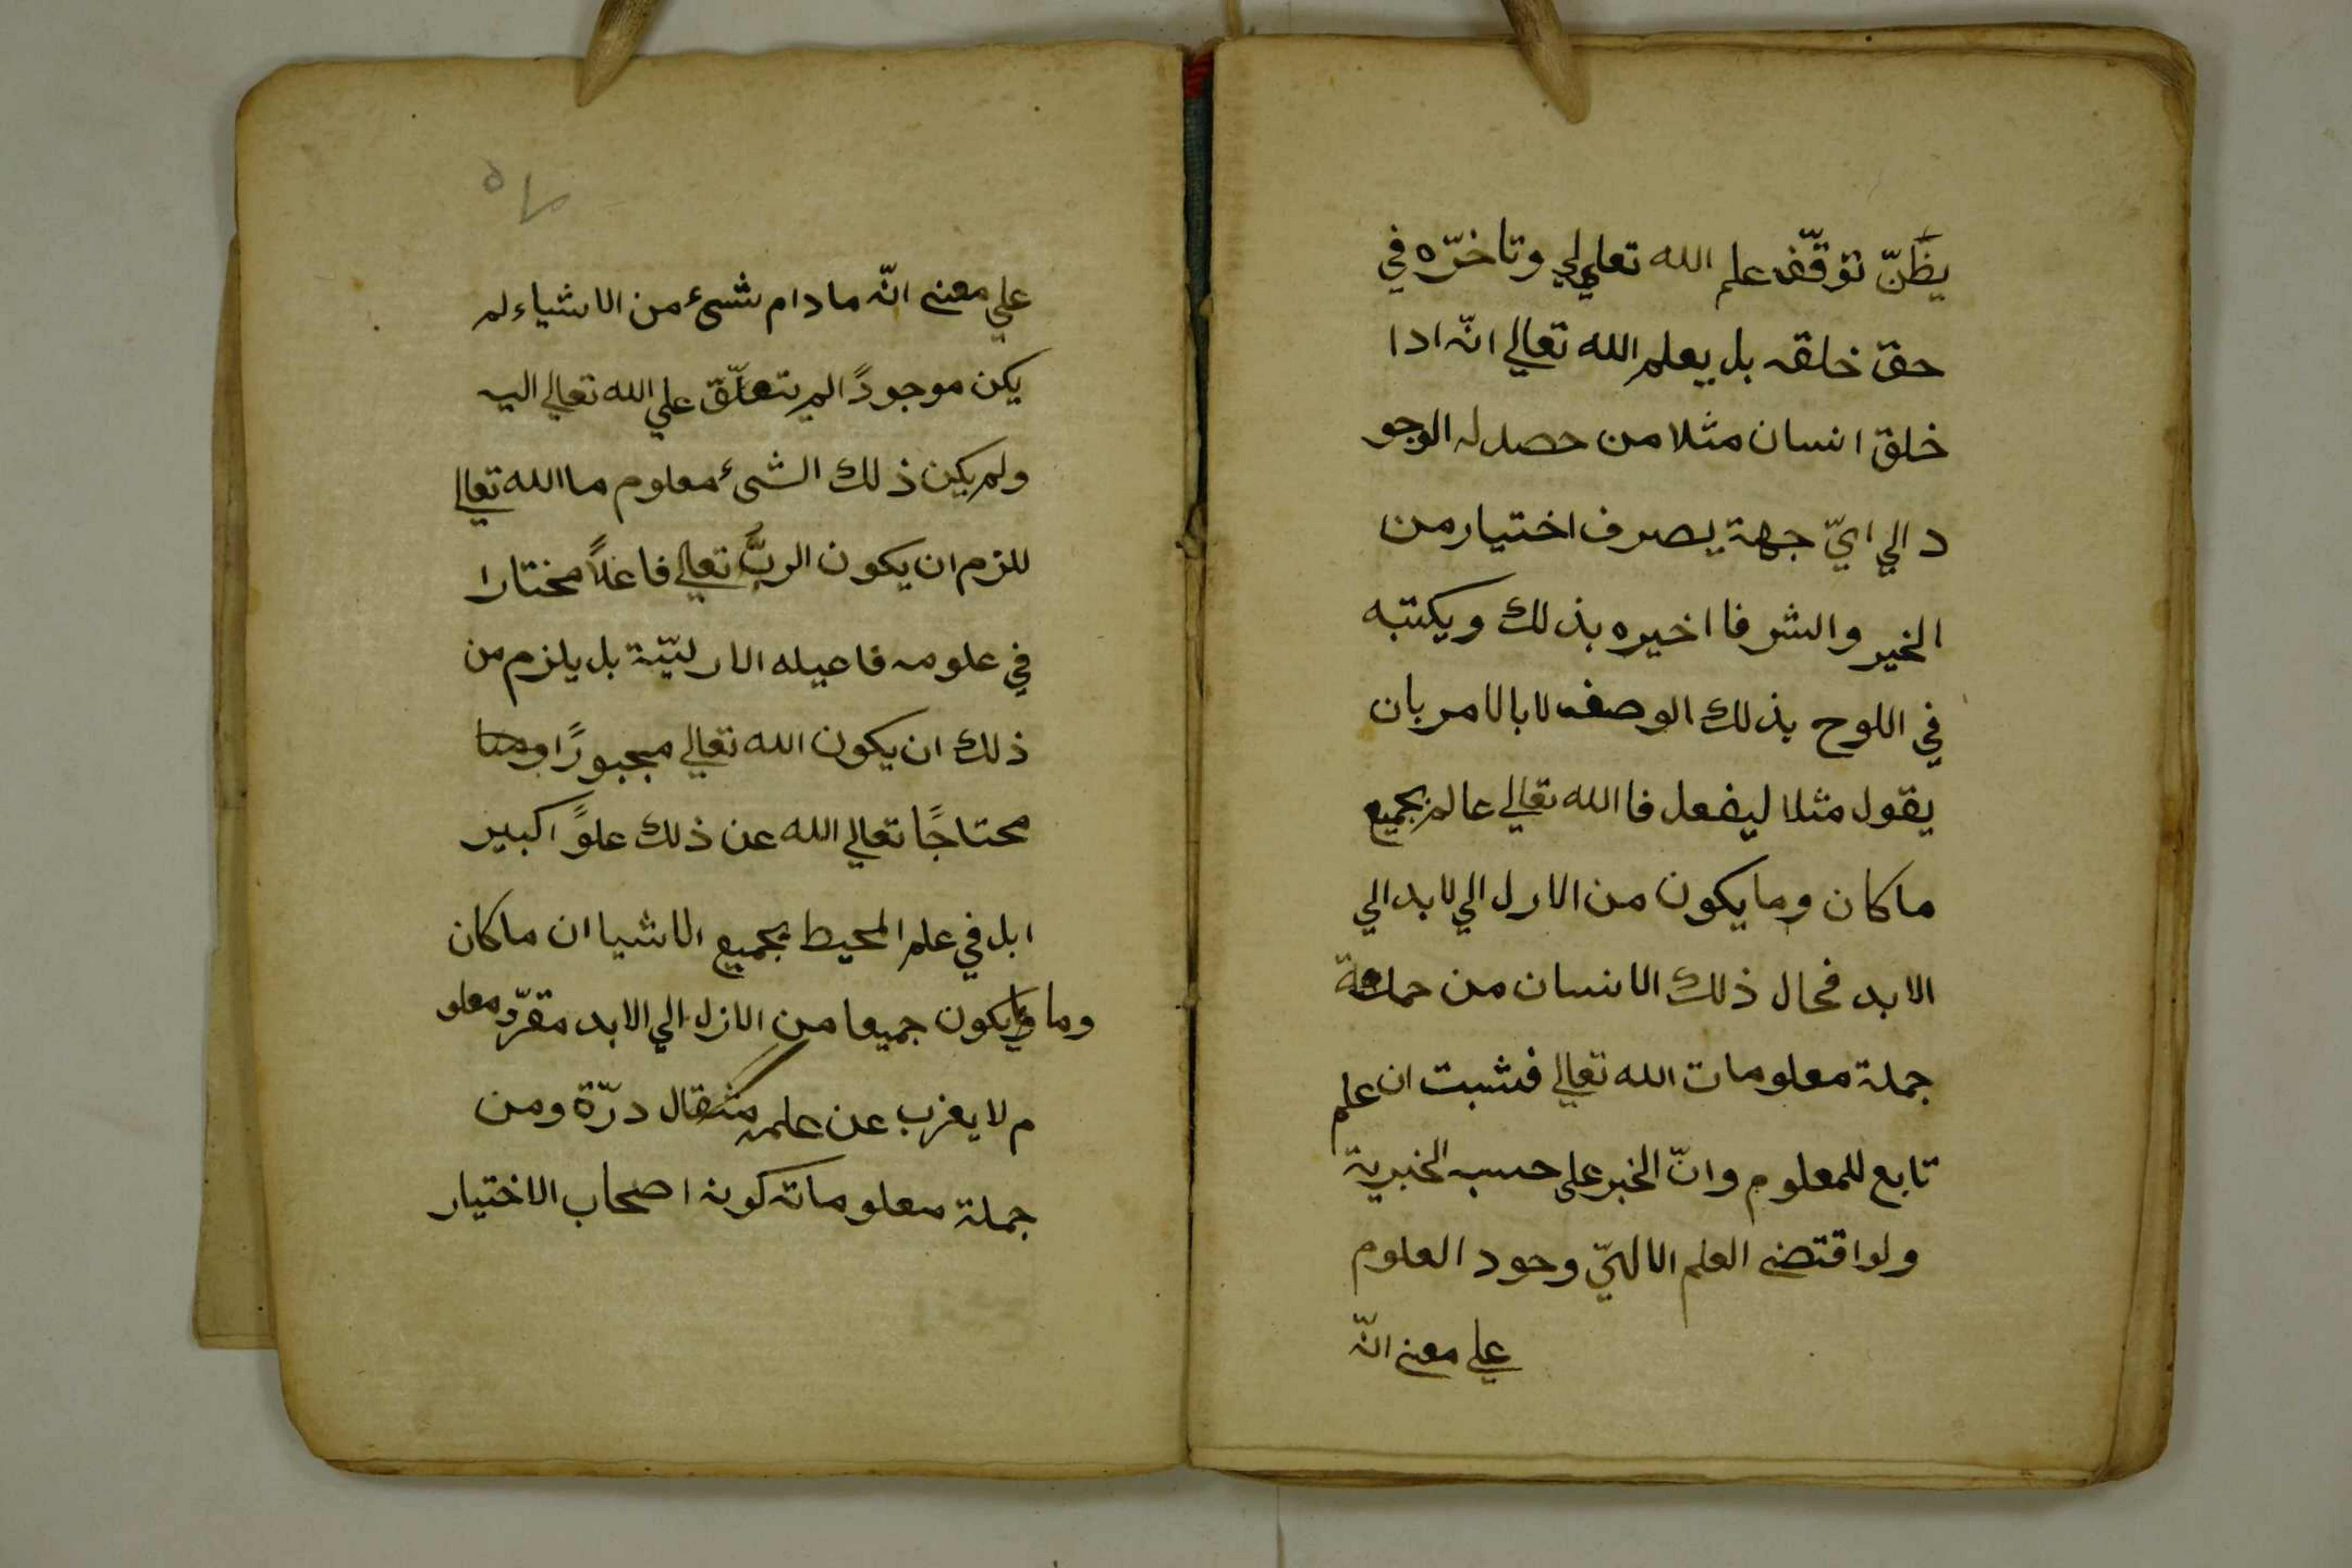 يظَنّ توقّف علم الله تعالي وتاخرّه في
حق خلقه بل يعلم الله تعالي انّه ادا
خلق انسان مثلا من حصل له الوجو
د الي ايّ جهة يصرف اختيار من
الخير والشر فا اخيره بذلك ويكتبه
في اللوح بذلك الوصف لا بالامر بان
يقول مثلا ليفعل فا الله تعالي عالم بجميع
ما كان وما يكون من الارل الي لابد الي
الابد فحال ذلك الانسان من
جملة معلومات الله تعالي فثبت ان علم
تابع للمعلوم وانّ الخبر علي حسب الخبرية
ولو اقتضي العلم الالهيّ وحود العلوم
علي معني انّه
علي معني انّه ما دام شئ من الاشياء لم
يكن موجودًا لم يتعلّق علي الله تعالي اليه
ولم يكن ذلك الشئ معلوم ما الله تعالي
للزم ان يكون الربُّ تعالي فاعلاً مختارا
في علومه فاعيله الارليّة بل يلزم من
ذلك ان يكون الله تعالي مجبورًا و
محتاجًا تعالي الله عن ذلك علوً اكبير
ا بل في علم المحيط بجميع الاشيا ان ما كان
وما يكون جميعا من الازل الي الابد مقرّر معلو
م لا يغرب عن علمه مثقال درّة ومن
جملة معلوماته كونه اصحاب الاختيار